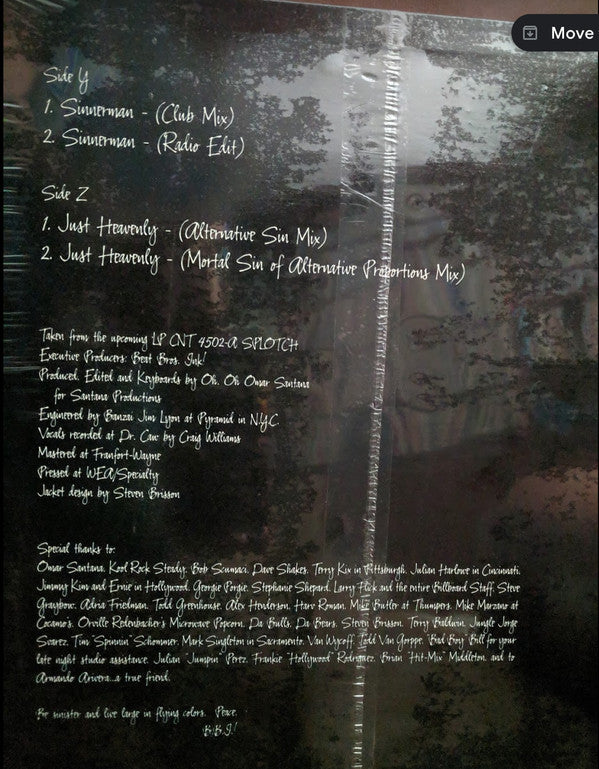 Move
Side Y
1. Sinnerman - (Club Mix)
2. Sinnerman - (Radio Edit)
Side Z
1. Just Heavenly - (Alternative Sin Mix)
2. Just Heavenly - (Mortal Sin of Alternative Proportions Mix)
Taken from the upcoming LP CNT 4502-A SPLOTCH
Executive Producers: Beat Bros. Ink!
Produced, Edited and Keyboards by Oh, Oh Omar Santana
for Santana Productions
Engineered by Banzai Jim Lyon at Pyramid in NYC
Vocals recorded at Dr. Caw by Craig Williams
Mastered at Franfort-Wayne
Pressed at WEA/Specialty
Jacket design by Steven Brisson
Special thanks to:
Omar Santana, Kool Rock Steady, Bob Scumaci, Dave Shakes, Terry Kix in Pittsburgh, Julian Harlowe in Cincinnati,
Jimmy Kim and Ernie in Hollywood, Georgie Porgie, Stephanie Shepard, Larry Flick and the entire Billboard Staff, Steve
Graybow, Adria Friedman, Todd Greenhouse, Alex Henderson, Harv Roman, Mike Butler at Thumpers, Mike Marzano at
Cocamo's, Orville Redenbacher's Microwave Popcorn, Da Bulls, Da Bears, Steven Brisson, Terry Baldwin, Jungle Jorge
Suarez, Tim "Spinnin" Schommer, Mark Singleton in Sacramento, Van Wycoff, Todd Van Gorppe, "Bad Boy" Bill for your
late night studio assistance, Julian "Jumpin" Perez, Frankie "Hollywood" Rodriguez, Brian "Hit-Mix" Middleton, and to
Armando Rivera...a true friend.
Be sinister and live large in flying colors. Peace,
B.B.I.!